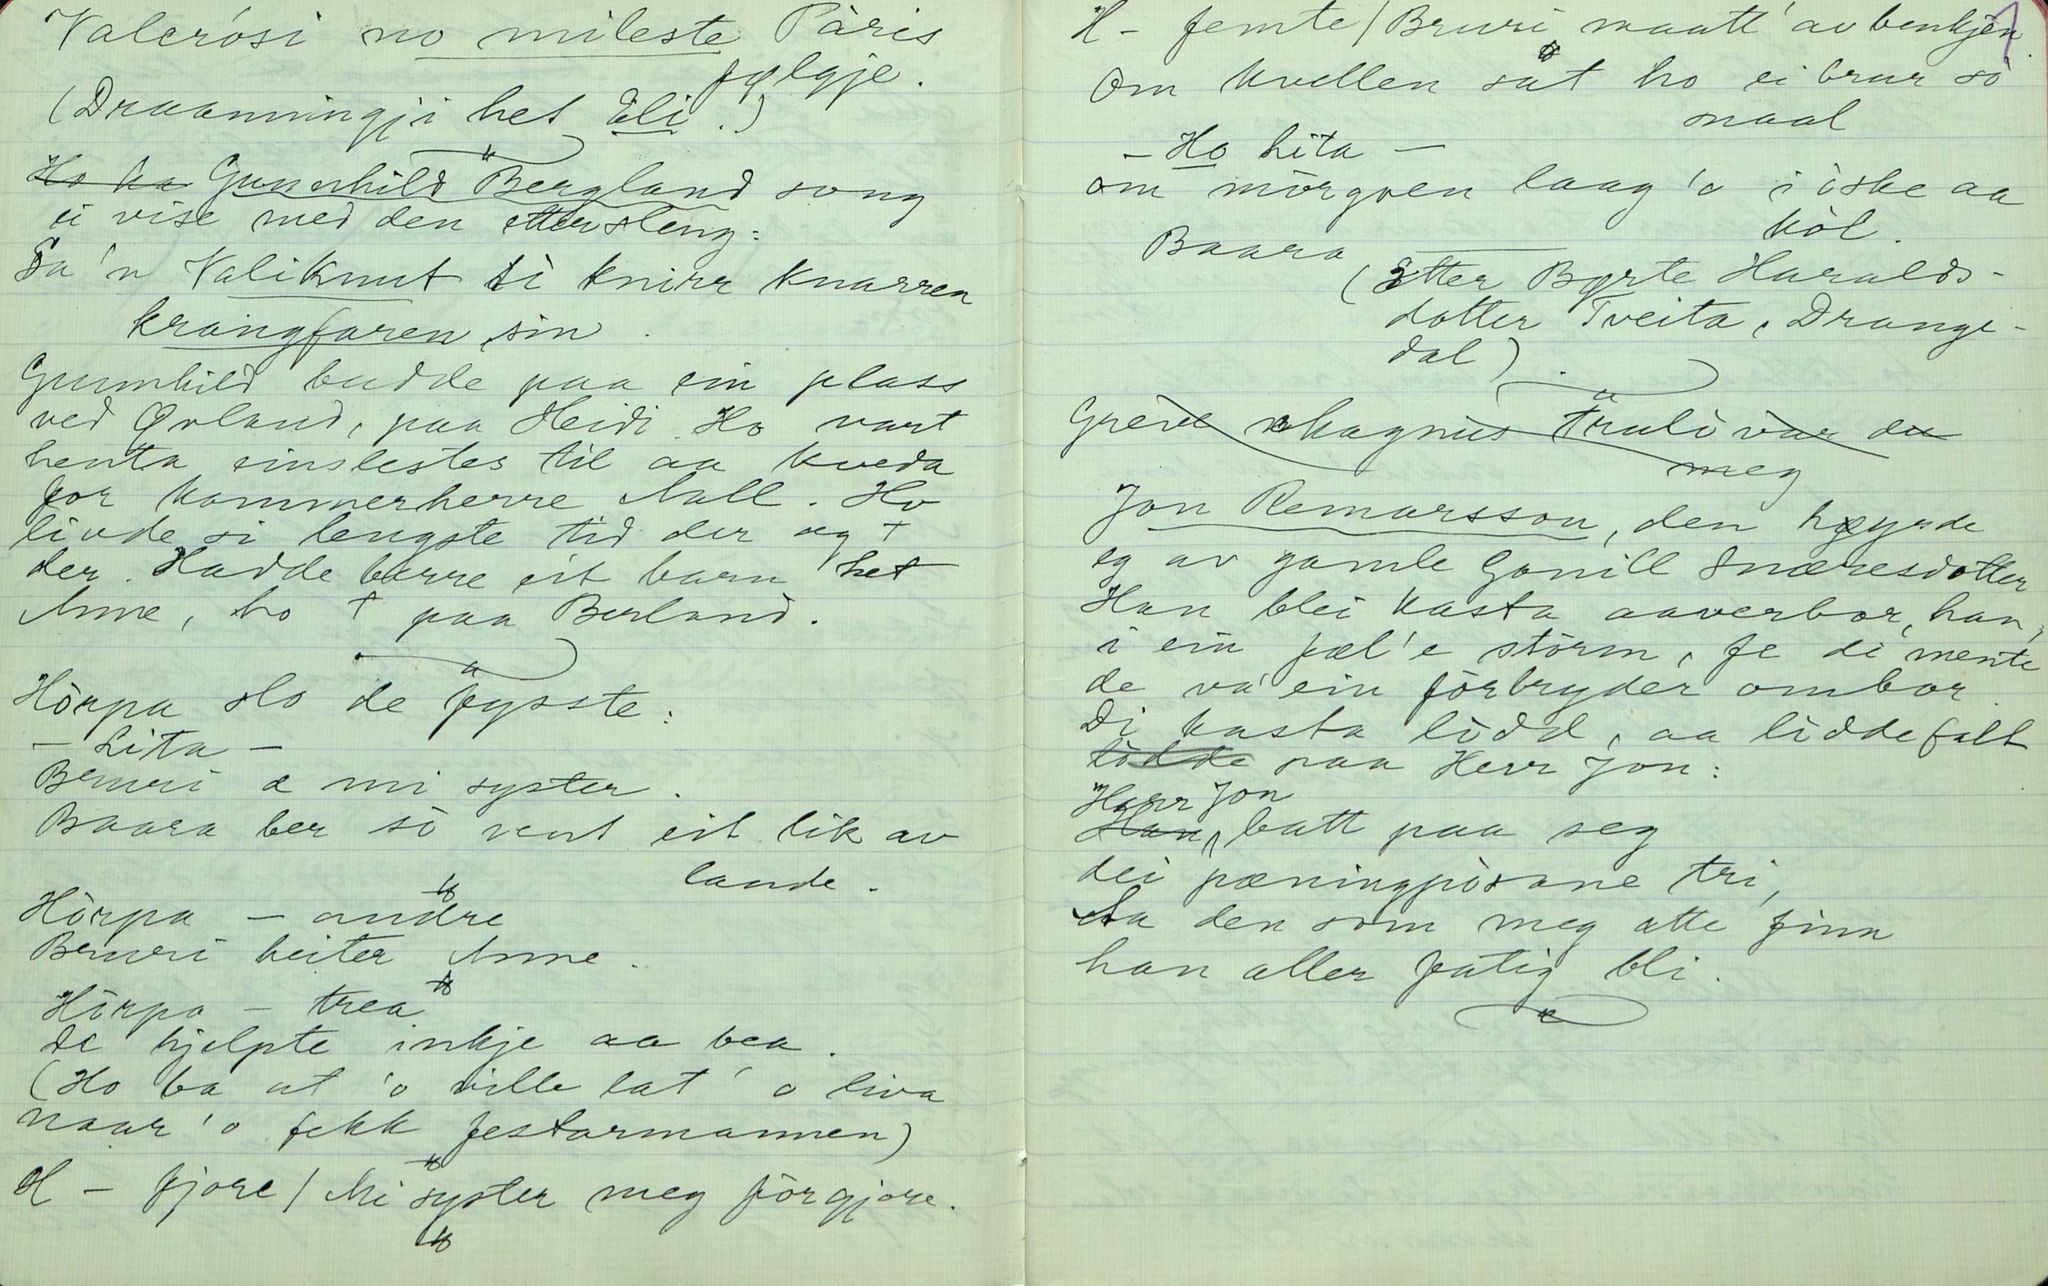 Valerósi no mileste Páris
følgje.
(Draanningji het Eli.)
Ho aa Gunnhild Bergland song
ei vise med den ettersleng:
Sa 'n Valiknut ti knirr knarren
krangfaren sin.
Gunnhild budde paa ein plass
ved Ørland, paa Heidi. Ho vart
henta einslestes til aa kveda
for kammerherre Aall. Ho
livde si lengste tid der og †
der. Hadde berre eit barn het
Anne, ho † paa Berland.
Hòrpa slo de fysste:
– Lita –
Bruri æ mi syster.
Baara ber so vent eit lik av
lande.
Hòrpa – andre
Bruri heiter Anne.
Hòrpa – trea
De hjelpte inkje aa bea.
(Ho ba at 'o ville lat' 'o liva
naar 'o fekk festarmannen)
H – fjore / Mi syster meg fòrgjore.
7
H – femte / Bruri maatt' av benkjen.
Om kvellen sat ho ei brur so
maal
– Ho lita –
om mòrgoen laag 'o i òske aa
kòl.
Baara
(Etter Børte Haralds-
dotter Tveita, Drange-
dal).
Greive Magnus truli var du
meg
Jon Remarsson, den høyrde
eg av gamle Gonill Snæresdotter
Han blei kasta aaverbor, han,
i ein fæl'e stòrm, fe di mente
de va' ein fòrbryder ombor.
Di kasta lòdd, aa lòdde falt
lòdde paa Herr Jon:
Herr Jon
Han, batt paa seg
dei pæningpòsane tri,
Aa den som meg atte finn
han aller fatig bli.